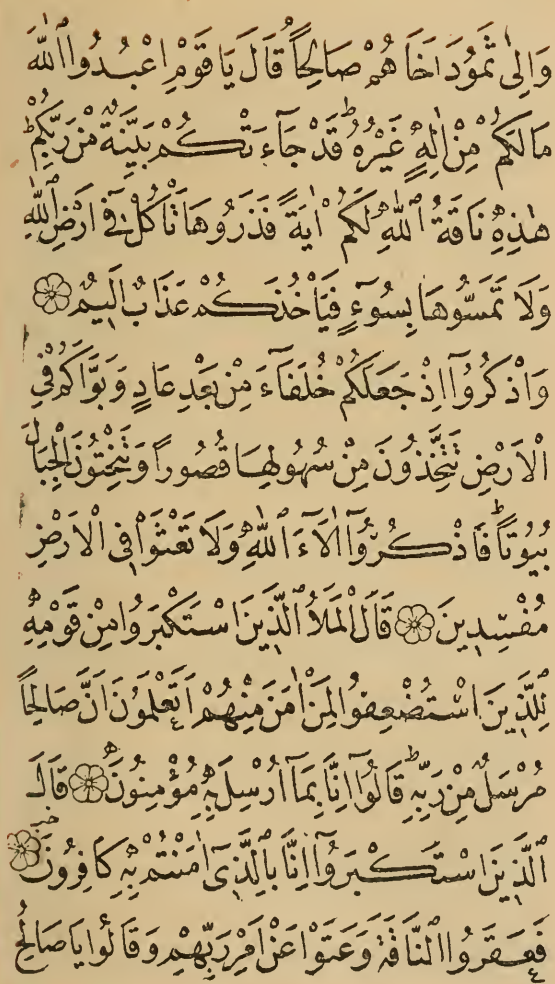 وَاِلٰى ثَمُودَ اَخَاهُمْ صَالِحًاۢ قَالَ يَا قَوْمِ اعْبُدُوا ٱللّٰهَ
مَالَكُمْ مِنْ اِلٰهٍ غَيْرُهُۜ قَدْ جَآءَتْكُمْ بَيِّنَةٌ مِنْ رَبِّكُمْۜ
هٰذِهٖ نَاقَةُ ٱللّٰهِ لَكُمْ اٰيَةً فَذَرُوهَا تَأْكُلْ فٖٓى اَرْضِ ٱللّٰهِ
وَلَا تَمَسُّوهَا بِسُوٓءٍ فَيَأْخُذَكُمْ عَذَابٌ اَلٖيمٌ ۝
وَاذْكُرُوٓا اِذْ جَعَلَكُمْ خُلَفَآءَ مِنْ بَعْدِ عَادٍ وَبَوَّاَكُمْ فِى
الْاَرْضِ تَتَّخِذُونَ مِنْ سُهُولِهَا قُصُورًا وَتَنْحِتُونَ الْجِبَالَ
بُيُوتًاۜ فَاذْكُرُٓوا اٰلَآءَ ٱللّٰهِ وَلَا تَعْثَوْا فِى الْاَرْضِ
مُفْسِدٖينَ ۝ قَالَ الْمَلَاُ ٱلَّذٖينَ اسْتَكْبَرُوا مِنْ قَوْمِهٖ
لِلَّذٖينَ اسْتُضْعِفُوا لِمَنْ اٰمَنَ مِنْهُمْ اَتَعْلَمُونَ اَنَّ صَالِحًا
مُرْسَلٌ مِنْ رَبِّهٖۜ قَالُوٓا اِنَّا بِمَٓا اُرْسِلَ بِهٖ مُؤْمِنُونَ ۝ قَالَ
ٱلَّذٖينَ اسْتَكْبَرُوٓا اِنَّا بِٱلَّذٖٓى اٰمَنْتُمْ بِهٖ كَافِرُونَ ۝
فَعَقَرُوا ٱلنَّاقَةَ وَعَتَوْا عَنْ اَمْرِ رَبِّهِمْ وَقَالُوا يَا صَالِحُ